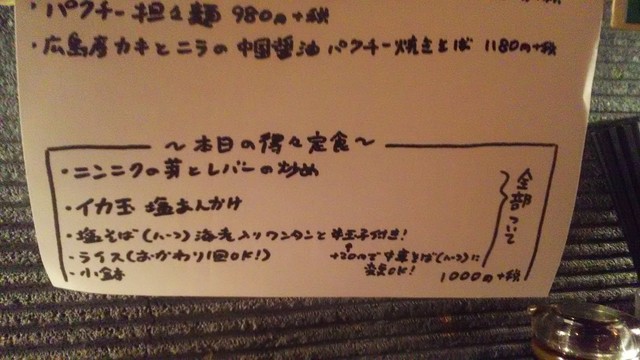 ・パクチー担々麺 980円+税
・広島産カキとニラの中国醤油パクチー焼きそば 1180円+税
～本日の得々定食～
・ニンニクの芽とレバーの炒め
・イカ玉 塩あんかけ
・塩そば(ハーフ) 海老入りワンタンと半玉子付き!
・ライス(おかわり1回OK!)
+20円で中華そば(ハーフ)に変更OK!
・小鉢
全部ついて
1000円+税